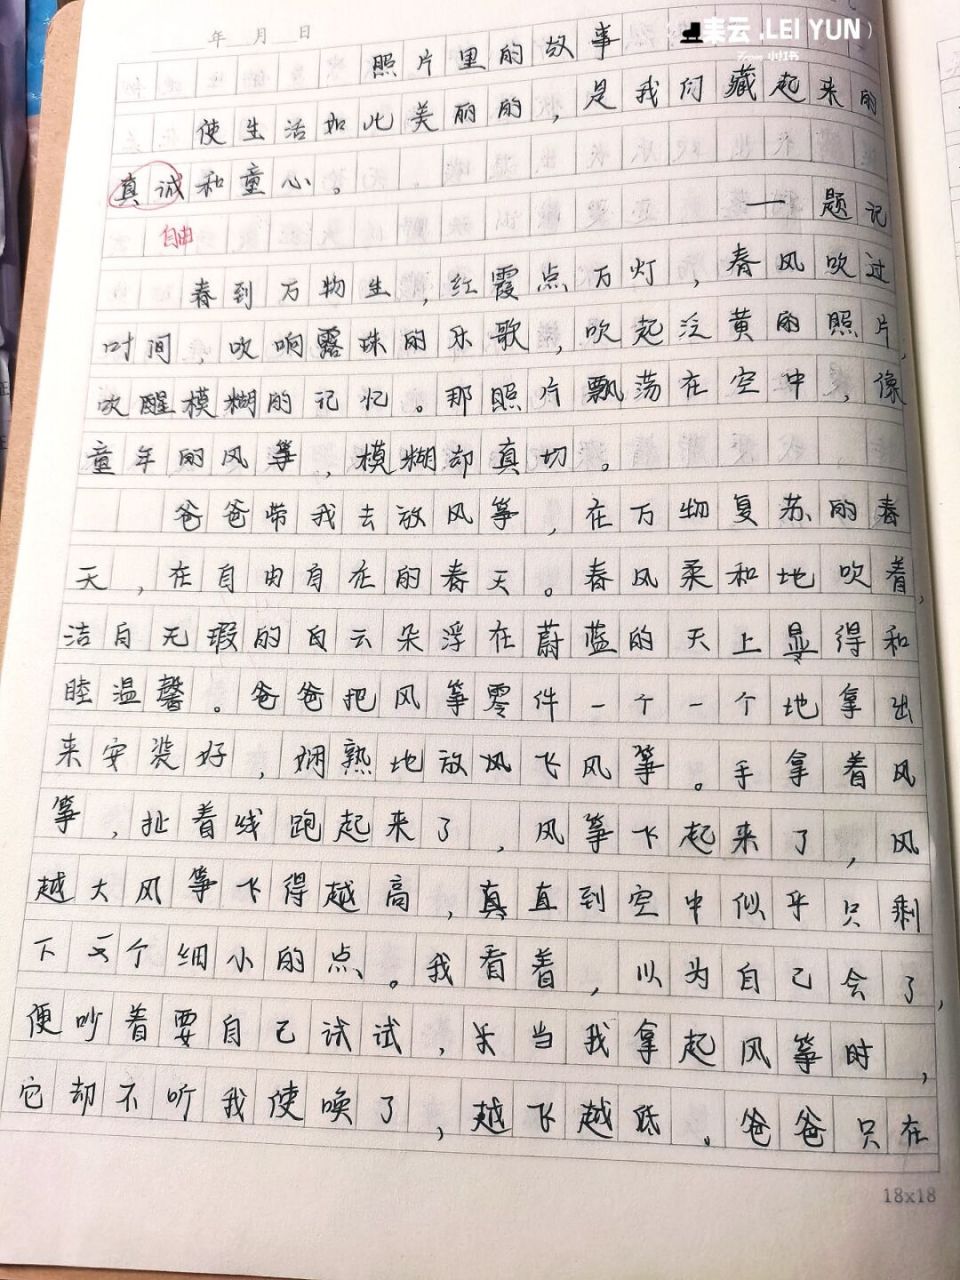 耒云.LEI YUN
年 月 日
照片里的故事
使生活如此美丽的，是我们藏起来的
真诚和童心。
——题记
自由
春到万物生，红霞点万灯，春风吹过
时间，吹响露珠的乐歌，吹起泛黄的照片，
吹醒模糊的记忆。那照片飘荡在空中，像
童年的风筝，模糊却真切。
爸爸带我去放风筝，在万物复苏的春
天，在自由自在的春天。春风柔和地吹着，
洁白无瑕的白云朵浮在蔚蓝的天上显得和
睦温馨。爸爸把风筝零件一个一个地拿出
来安装好，娴熟地放风飞风筝。手拿着风
筝，扯着线跑起来了，风筝飞起来了，风
越大风筝飞得越高，真直到空中似乎只剩
下一个细小的点。我看着，以为自己会了，
便吵着要自己试试，当我拿起风筝时，
它却不听我使唤了，越飞越低。爸爸只在
18x18